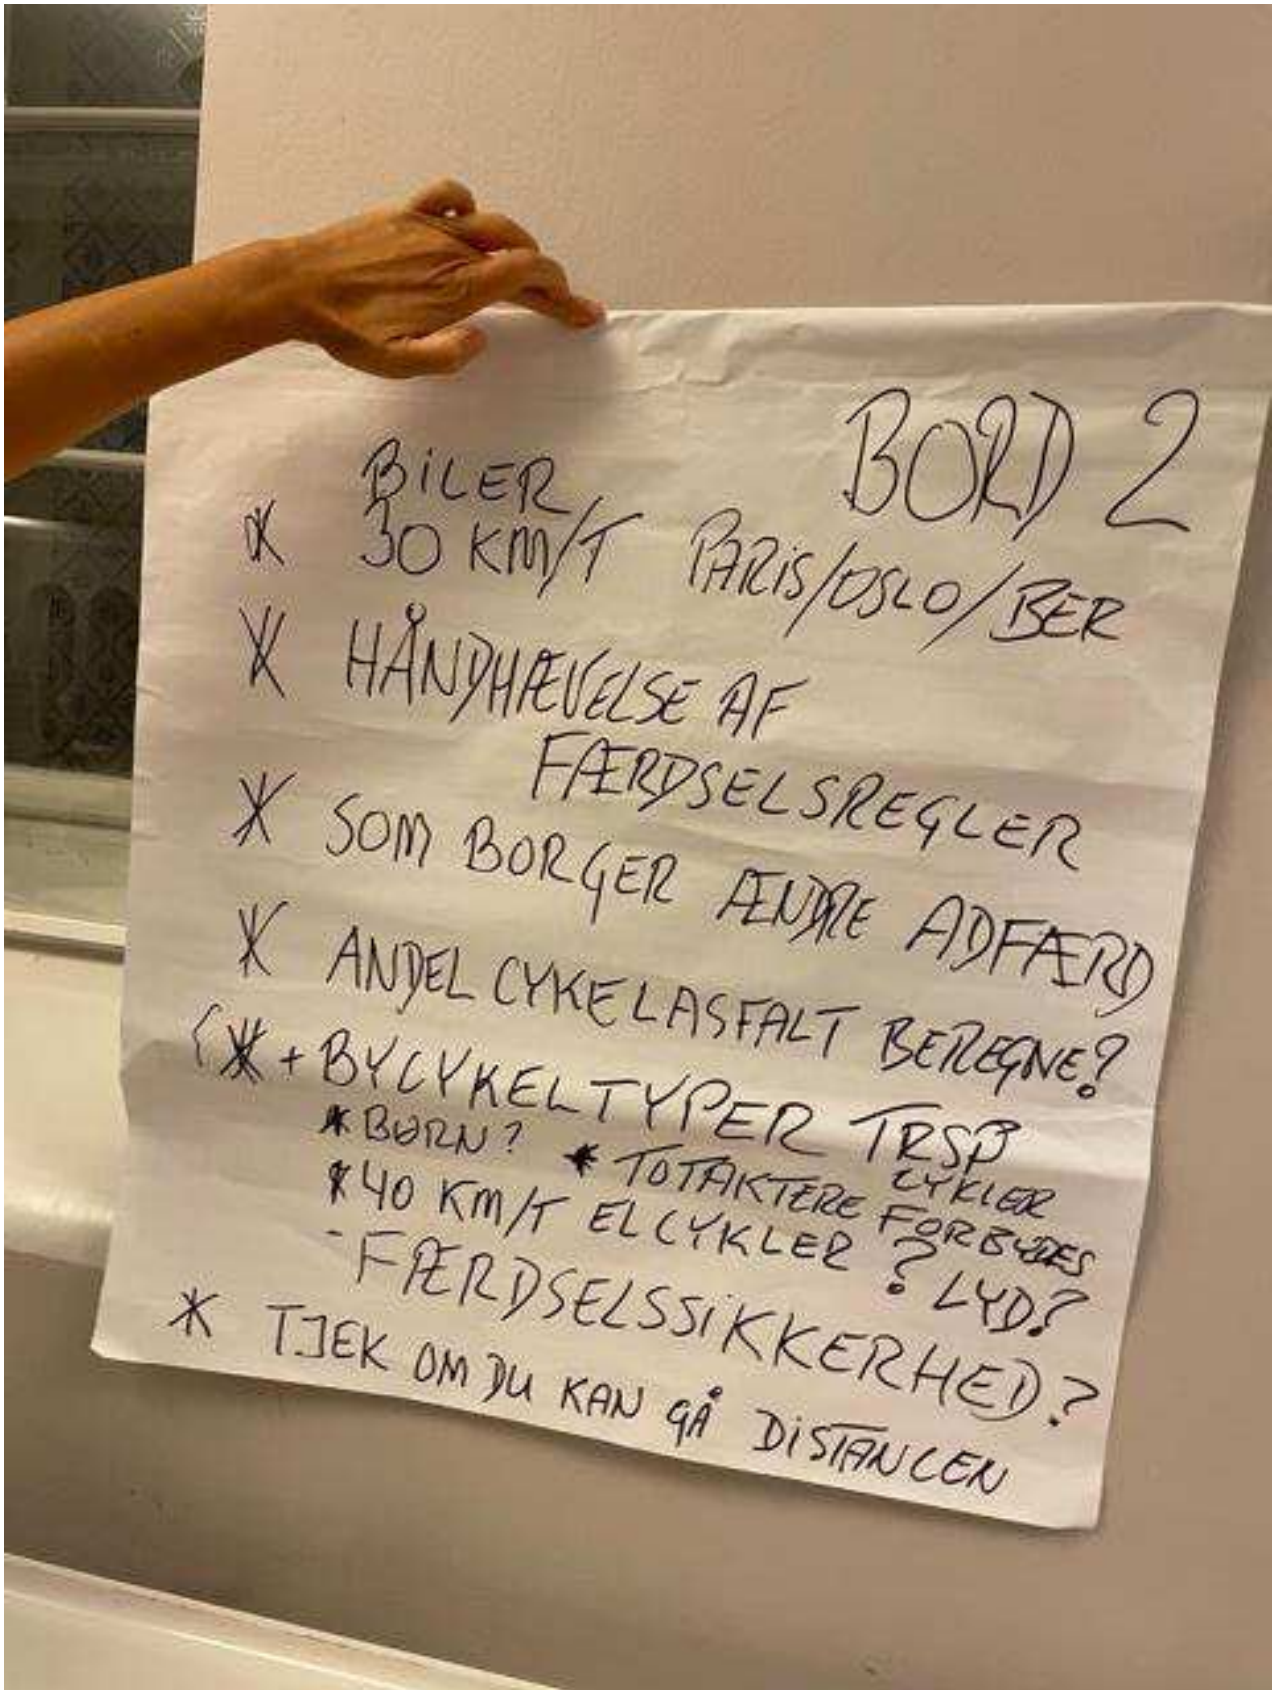 BORD 2
BILER
* 30 KM/T PARIS/OSLO/BER
* HÅNDHÆVELSE AF
FÆRDSELSREGLER
* SOM BORGER ÆNDRE ADFÆRD
* ANDEL CYKELASFALT BEREGNE?
(* + BYCYKELTYPER TRSP
CYKLER
* BØRN? * TOTAKTERE FORBYDES
* 40 KM/T ELCYKLER ? LYD?
- FÆRDSELSSIKKERHED?
* TJEK OM DU KAN GÅ DISTANCEN